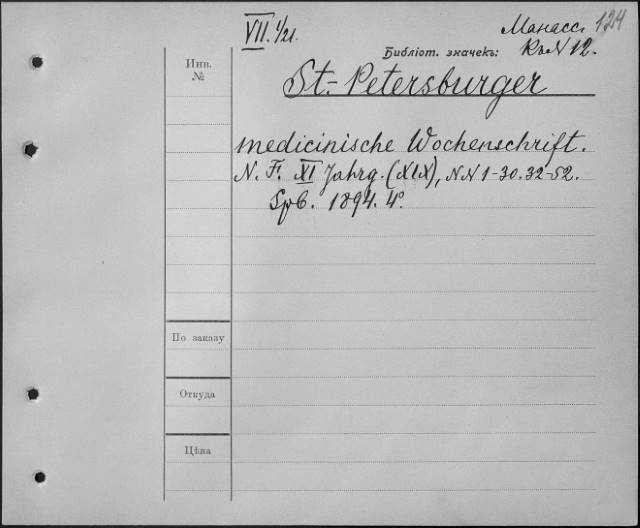 VII. 1/21.
Манасс. 124
Библіот. значекъ: Къ N 12.
Инв.
№
St.-Petersburger
medicinische Wochenschrift.
N. F. XI Jahrg. (XIX), NN 1-30. 32-52.
Spb. 1894. 4°.
По заказу
Откуда
Цѣна